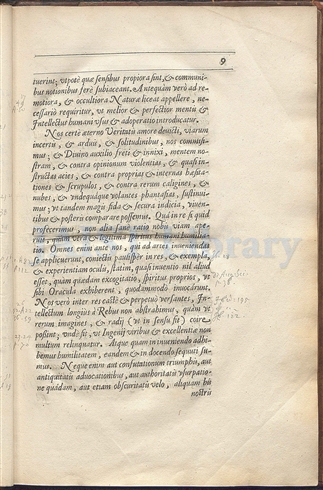 9
tuerint; vtpotè quæ sensibus propiora sint, & communi-
bus notionibus ferè subiaceant. Antequàm verò ad re-
motiora, & occultiora Naturæ liceat appellere, ne-
cessariò requiritur, vt melior & perfectior mentis &
Intellectus humani vsus & adoperatio introducatur.
Nos certè æterno Veritatis amore deuicti, viarum
incertis, & arduis, & solitudinibus, nos commisi-
mus; & Diuino auxilio freti & innixi, mentem no-
stram, & contra opinionum violentias, & quasi in-
structas acies, & contra proprias & internas hæsita-
tiones & scrupulos, & contra rerum caligines, &
nubes, & vndequáque volantes phantasias, sustinui-
mus; vt tandem magis fida & secura indicia, viuen-
tibus & posteris comparare possemus. Quâ in re si quid
profecerimus, non alia sanè ratio nobis viam ape-
ruit, quàm vera & legitima spiritus humani humilia-
tio. Omnes enim ante nos, qui ad artes inueniendas
se applicuerunt, coniectis paulisper in res, & exempla,
& experientiam oculis, statim, quasi inuentio nil aliud
esset, quàm quædam excogitatio, spiritus proprios, vt
sibi Oracula exhiberent, quodammodò inuocârunt.
Nos verò inter res castè & perpetuò versantes, In-
tellectum longiùs à Rebus non abstrahimus, quàm vt
rerum imagines, & radij (vt in sensu fit) coire
possint; vnde fit, vt Ingenij viribus & excellentiæ non
multum relinquatur. Atque quam in inueniendo adhi-
bemus humilitatem, eandem & in docendo sequuti su-
mus. Neque enim aut confutationum triumphis, aut
antiquitatis aduocationibus, aut authoritatis vsurpatio-
ne quâdam, aut etiam obscuritatis velo, aliquam his
nostris